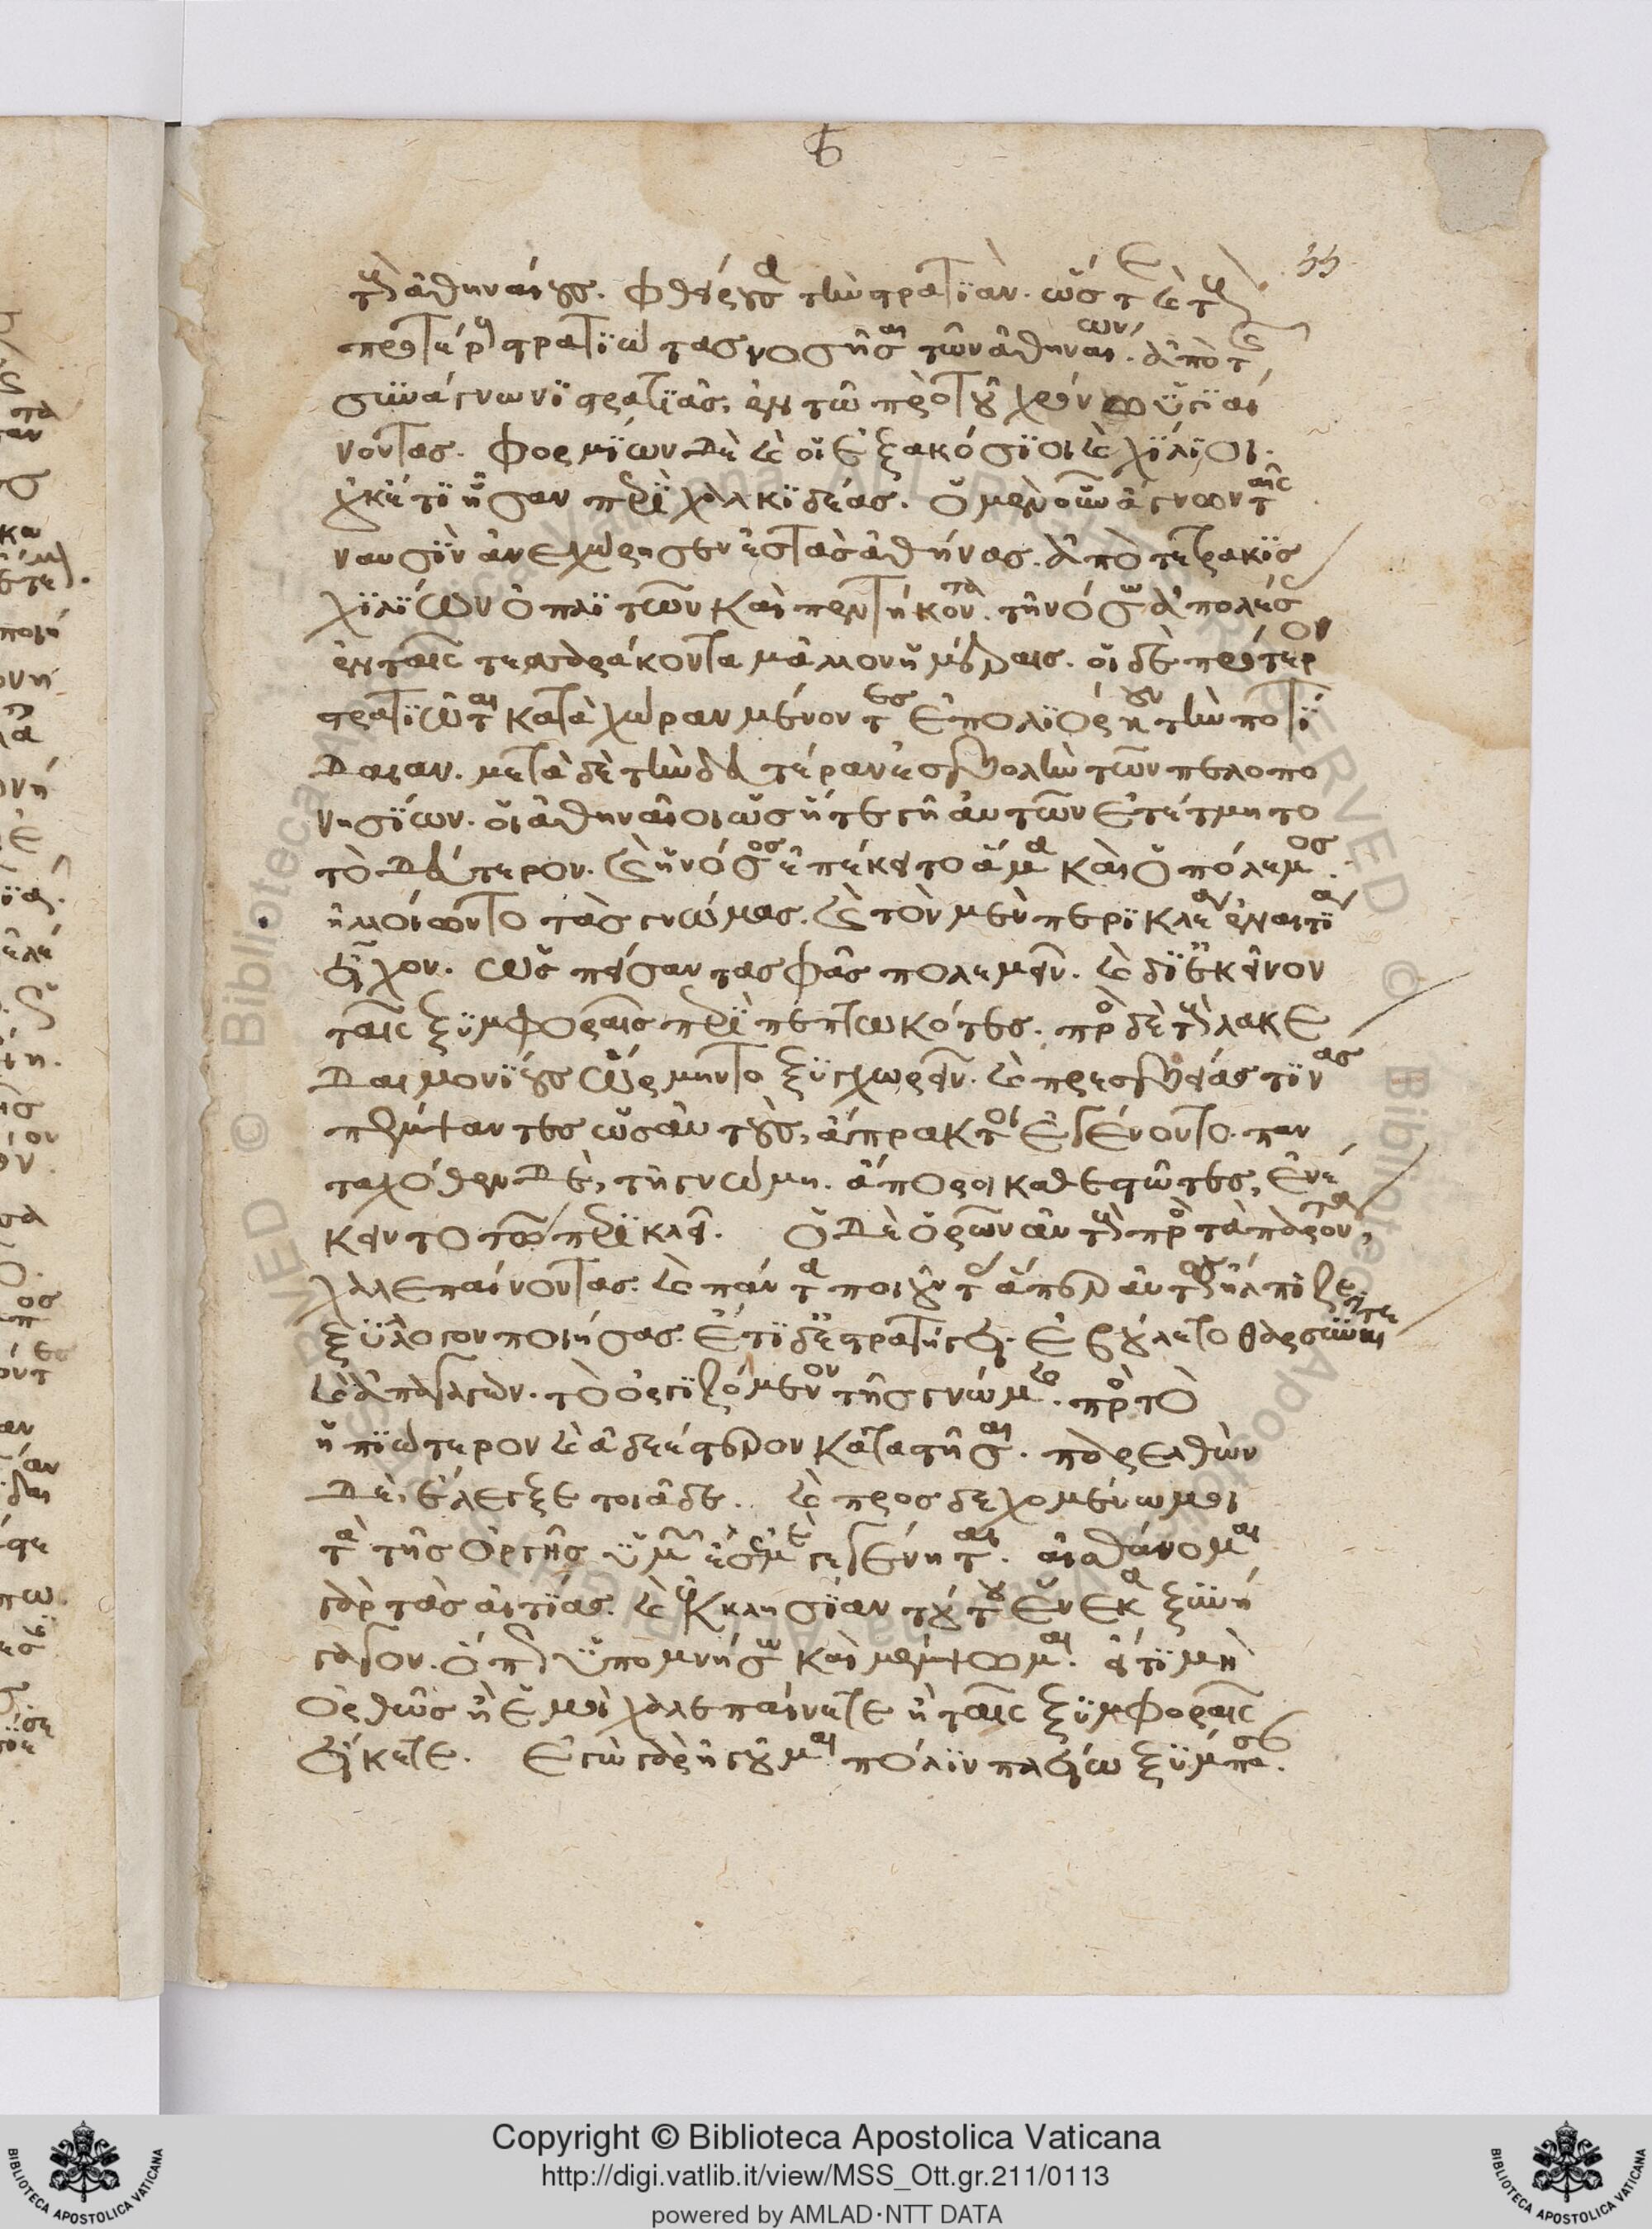 55
τοὺς ἀθηναίους. φθείρουσα τὴν στρατιὰν. ὥστε καὶ τοὺς
προτέρους στρατιώτας νοσῆσαι τῶν ἀθηναίων. ἀπὸ τῆς
σὺν ἅγνωνι στρατιᾶς, ἐν τῶ πρὸ τοῦ χρόνω ὑγιαί
νοντας. φορμίων δὲ καὶ οἱ ἑξακόσιοι καὶ χίλιοι.
οὐκέτι ἦσαν περὶ χαλκιδέας. ὁ μὲν οὖν ἅγνων ταῖς
ναυσὶν ἀνεχώρησεν ἐς τὰς ἀθήνας. ἀπὸ τετρακισ
χιλίων ὁπλιτῶν καὶ πεντήκοντα. τῆ νόσω ἀπολέσας
ἐν ταῖς τεσσαράκοντα μάλλον ἡμέραις. οἱ δὲ πρότερον
στρατιῶται κατὰ χώραν μένοντες ἐπολιόρκουν τὴν ποτί
δαιαν. μετὰ δὲ τὴν δευτέραν ἐσβολὴν τῶν πελοπο
νησίων. οἱ ἀθηναῖοι ὡς ἥτε γῆ αὐτῶν ἐτέτμητο
τὸ δεύτερον. καὶ ἡ νόσος ἐπέκειτο ἅμα καὶ ὁ πόλεμος.
ἠλλοίωντο τὰς γνώμας. καὶ τὸν μὲν περικλέα ἐν αἰτία
εἶχον. ὡς πείσαντα σφᾶς πολεμεῖν. καὶ δι ἐκεῖνον
ταῖς ξυμφοραῖς περιπεπτωκότες. πρὸς δὲ τοὺς λακε
δαιμονίους ὥρμηντο ξυγχωρεῖν. καὶ πρεσβείας τινας
πέμψαντες ὡς αὐτοὺς, ἄπρακτοι ἐγένοντο. παν
ταχόθεν δὲ, τῆ γνώμη. ἄποροι καθεστῶτες, ἐνέ
κειντο τῶ περικλεῖ. ὁ δὲ ὁρῶν αὐτοὺς πρὸς τὰ παρόντα,
χαλεπαίνοντας. καὶ πάντα ποιοῦντας ἅπερ αὐτὸς ἤλπιζε.
ξύλλογον ποιήσας. ἔτι δ' ἐστρατήγει. ἐβούλετο θαρσῦναί τε
καὶ ἀπαγαγὼν. τὸ ὀργιζόμενον τῆς γνώμης. πρὸς τὸ
ἠπιώτερον καὶ ἀδεέστερον καταστῆσαι. παρελθὼν
δὲ, ἔλεγξε τοιάδε. καὶ προσδεχομένω μοι
τὰ τῆς ὀργῆς ὑμῶν ἔς με γεγένηται. αἰσθάνομαι
γὰρ τὰς αἰτίας. καὶ ἐκκλησίαν τούτου ἕνεκα ξυνή
γαγον. ὅπως ὑπομνήσω καὶ μέμψωμαι. εἴ τι μὴ
ὀρθῶς ἢ ἐμοὶ χαλεπαίνετε ἢ ταῖς ξυμφοραῖς
εἴκετε. ἐγὼ γὰρ ἡγοῦμαι πόλιν πλείω ξύμπασ